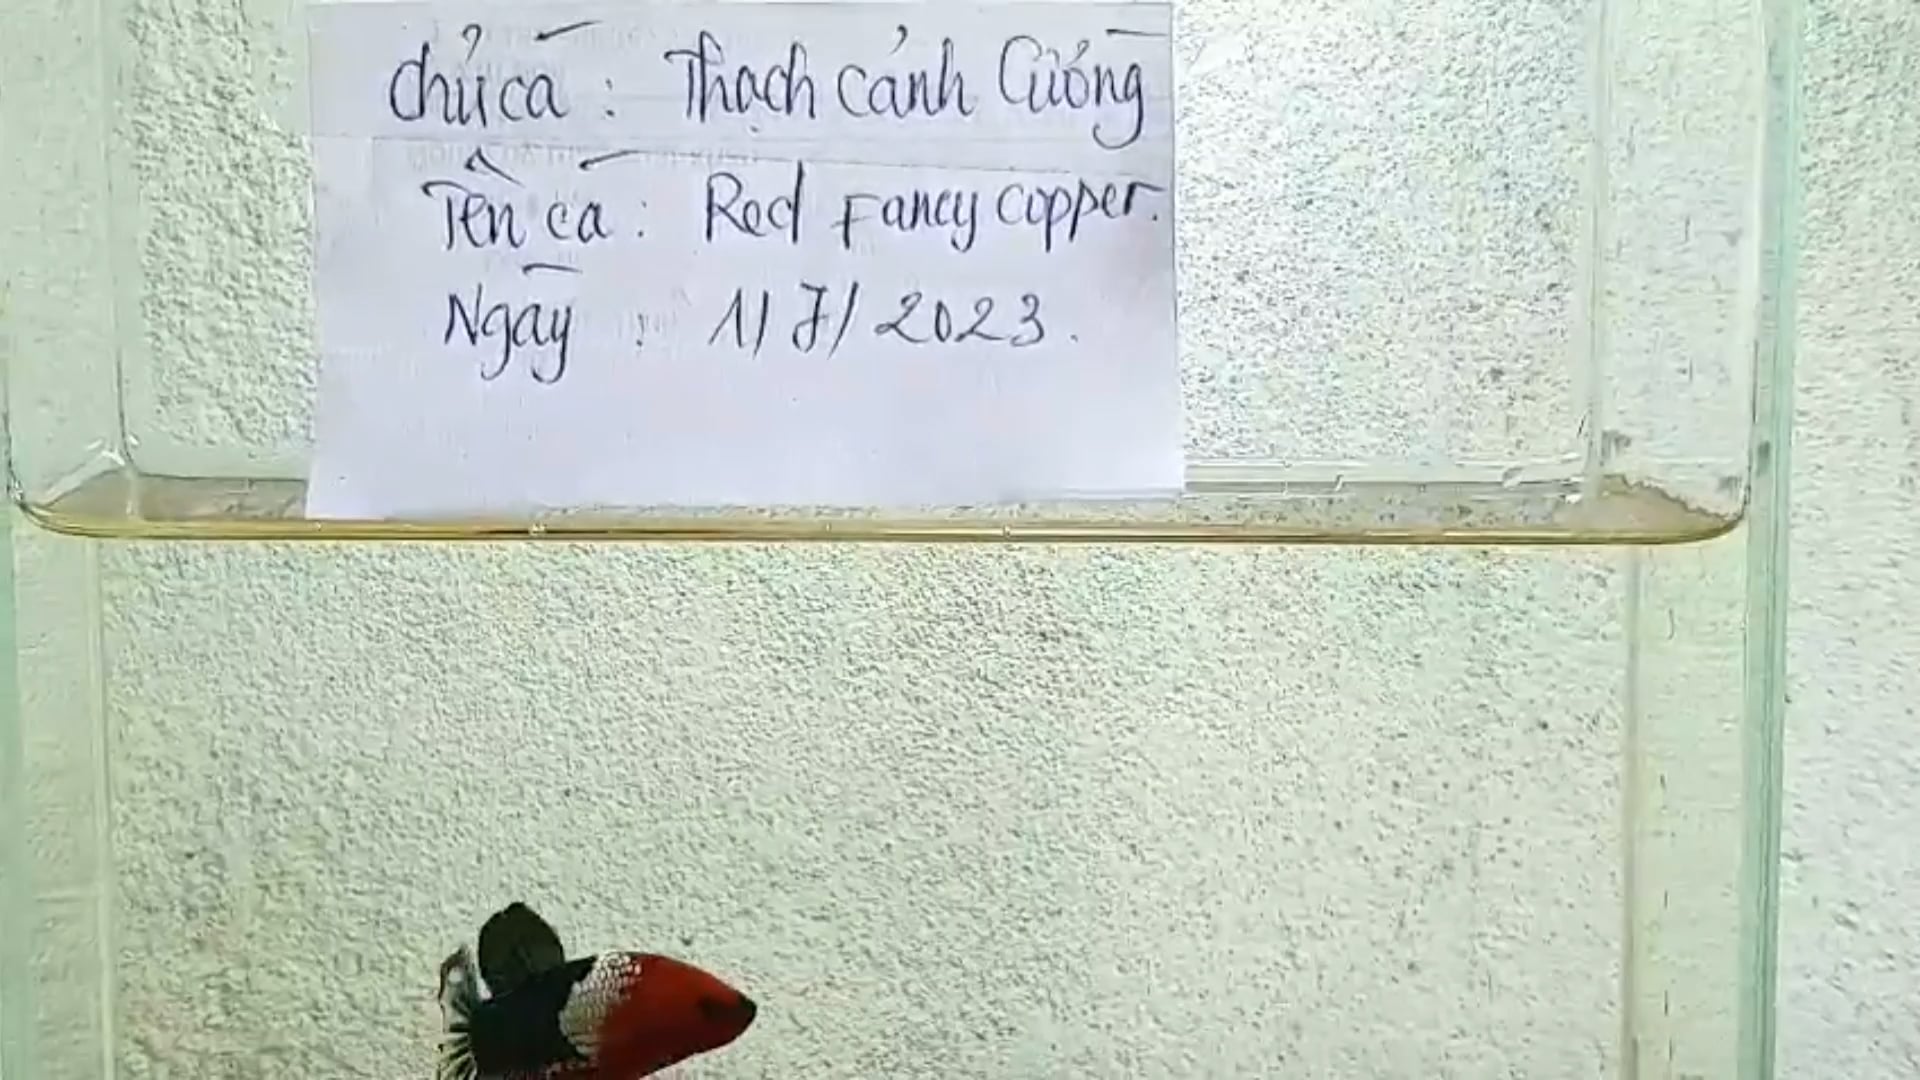 Chủ cá : Thạch Cảnh Cường
Tên cá : Red Fancy Copper.
Ngày : 1/7/2023.